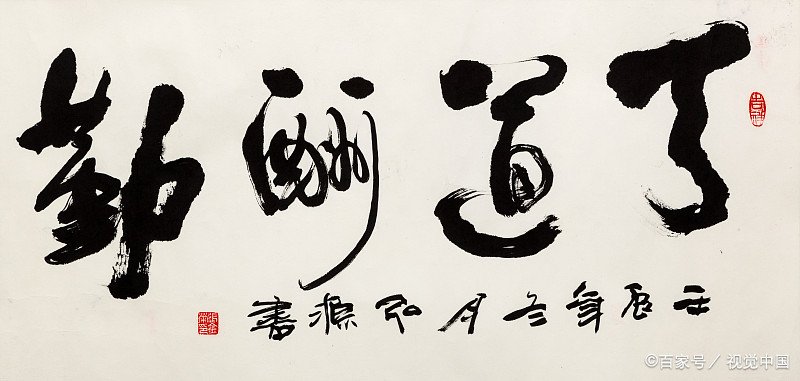 天道酬勤
壬辰年冬月弘源書
©百家号／视觉中国